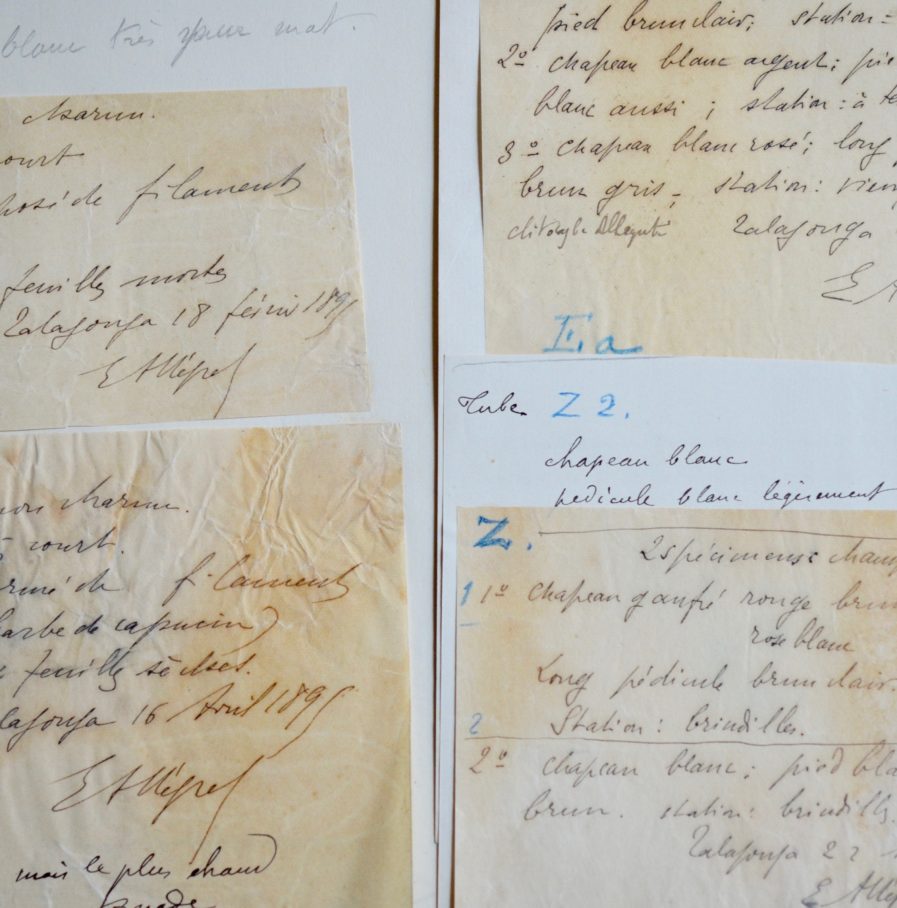 blanc très pur mat.
charnu.
court
filaments
feuilles mortes
Talagouga 18 février 1895
E Allégret
charnu.
court.
filaments
barbe de capucin)
feuilles sèches.
16 Avril 1895
E Allégret
mais le plus chaud
pied brun clair; station =
2º chapeau blanc argent; pie
blanc aussi; station: à te
3º chapeau blanc rosé; long
brun gris, station: vieu
Clitocybe Allegreti Talagouga
E A
E. a
Tube Z 2.
chapeau blanc
pédicule blanc légèrement
Z.
2 spécimens de cham
1 1º chapeau gaufré rouge brun
rose blanc
Long pédicule brun clair.
2 Station: brindilles.
2º chapeau blanc; pied bla
brun. station: brindilles.
Talagouga 22
E Allég